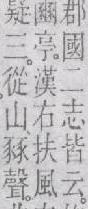 郡國二志皆云。
豳亭。漢右扶風
疑三。從山豩聲。